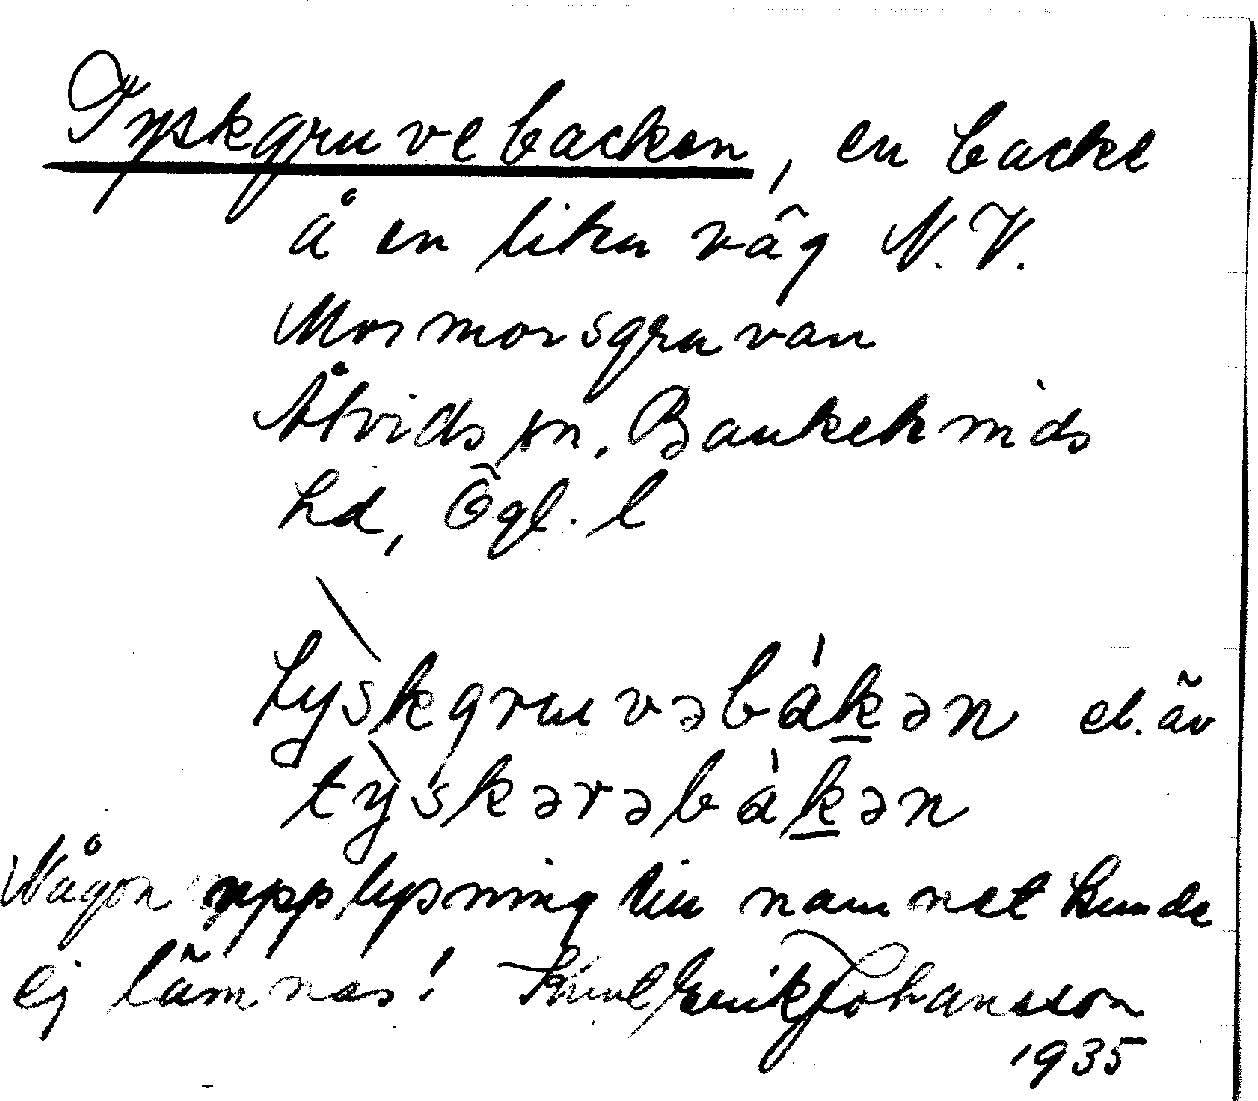 Tyskgruvebacken, en backe
å en liten väg N.V.
Mormorsgruvan
Åtvids sn. Bankekinds
hd, Ögl. l
tyskgruvəbàkən el. äv
tyskərəbàkən
Någon upplysning till namnet kunde
ej lämnas! Knut Erik Johansson
1935